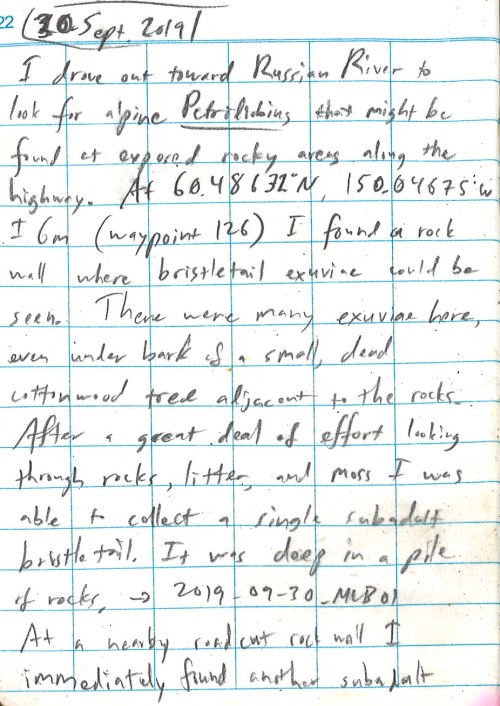 22 (30 Sept. 2019)
I drove out toward Russian River to
look for alpine Petrilobius that might be
found at exposed rocky areas along the
highway. At 60.48632°N, 150.04675°W
± 6m (waypoint 126) I found a rock
wall where bristletail exuviae could be
seen. There were many exuviae here,
even under bark of a small, dead
cottonwood tree adjacent to the rocks.
After a great deal of effort looking
through rocks, litter, and moss I was
able to collect a single subadult
bristletail. It was deep in a pile
of rocks, → 2019-09-30_MLB01
At a nearby roadcut rock wall I
immediately found another subadult